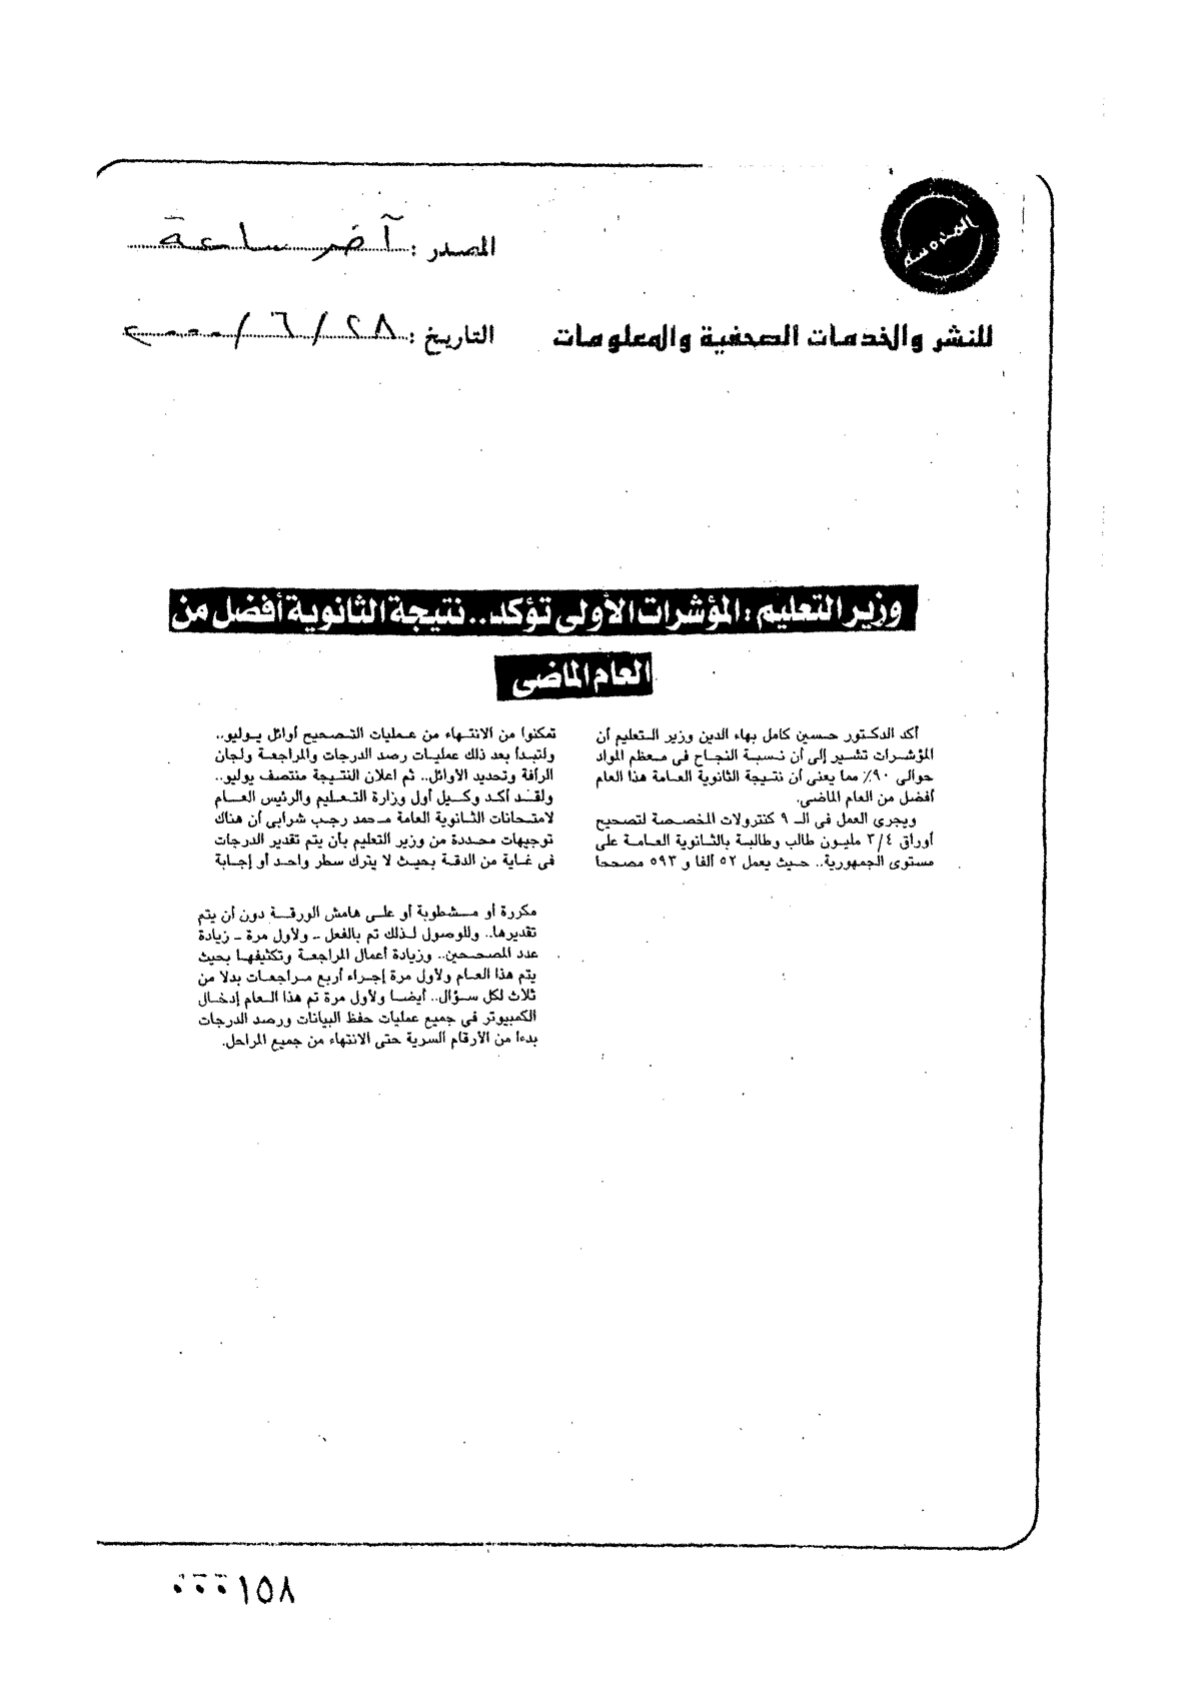 المحروسة
المصدر : آخر ساعة
للنشر والخدمات الصحفية والمعلومات
التاريخ : ٢٨/ ٦/ ٢٠٠٠
وزير التعليم : المؤشرات الأولى تؤكد.. نتيجة الثانوية أفضل من
العام الماضى
أكد الدكتور حسين كامل بهاء الدين وزير التعليم أن
المؤشرات تشير إلى أن نسبة النجاح فى معظم المواد
حوالى ٩٠٪ مما يعنى أن نتيجة الثانوية العامة هذا العام
أفضل من العام الماضى.
ويجرى العمل فى الـ ٩ كنترولات المخصصة لتصحيح
أوراق ٣/٤ مليون طالب وطالبة بالثانوية العامة على
مستوى الجمهورية.. حيث يعمل ٥٢ ألفا و ٥٩٣ مصححا
تمكنوا من الانتهاء من عمليات التصحيح أوائل يوليو..
ولتبدأ بعد ذلك عمليات رصد الدرجات والمراجعة ولجان
الرأفة وتحديد الأوائل.. ثم اعلان النتيجة منتصف يوليو..
ولقد أكد وكيل أول وزارة التعليم والرئيس العام
لامتحانات الثانوية العامة محمد رجب شرابى أن هناك
توجيهات محددة من وزير التعليم بأن يتم تقدير الدرجات
فى غاية من الدقة بحيث لا يترك سطر واحد أو إجابة
مكررة أو مشطوبة أو على هامش الورقة دون أن يتم
تقديرها.. وللوصول لذلك تم بالفعل ـ ولأول مرة ـ زيادة
عدد المصححين.. وزيادة أعمال المراجعة وتكثيفها بحيث
يتم هذا العام ولأول مرة إجراء أربع مراجعات بدلا من
ثلاث لكل سؤال.. أيضا ولأول مرة تم هذا العام إدخال
الكمبيوتر فى جميع عمليات حفظ البيانات ورصد الدرجات
بدءا من الأرقام السرية حتى الانتهاء من جميع المراحل.
٠٠٠١٥٨